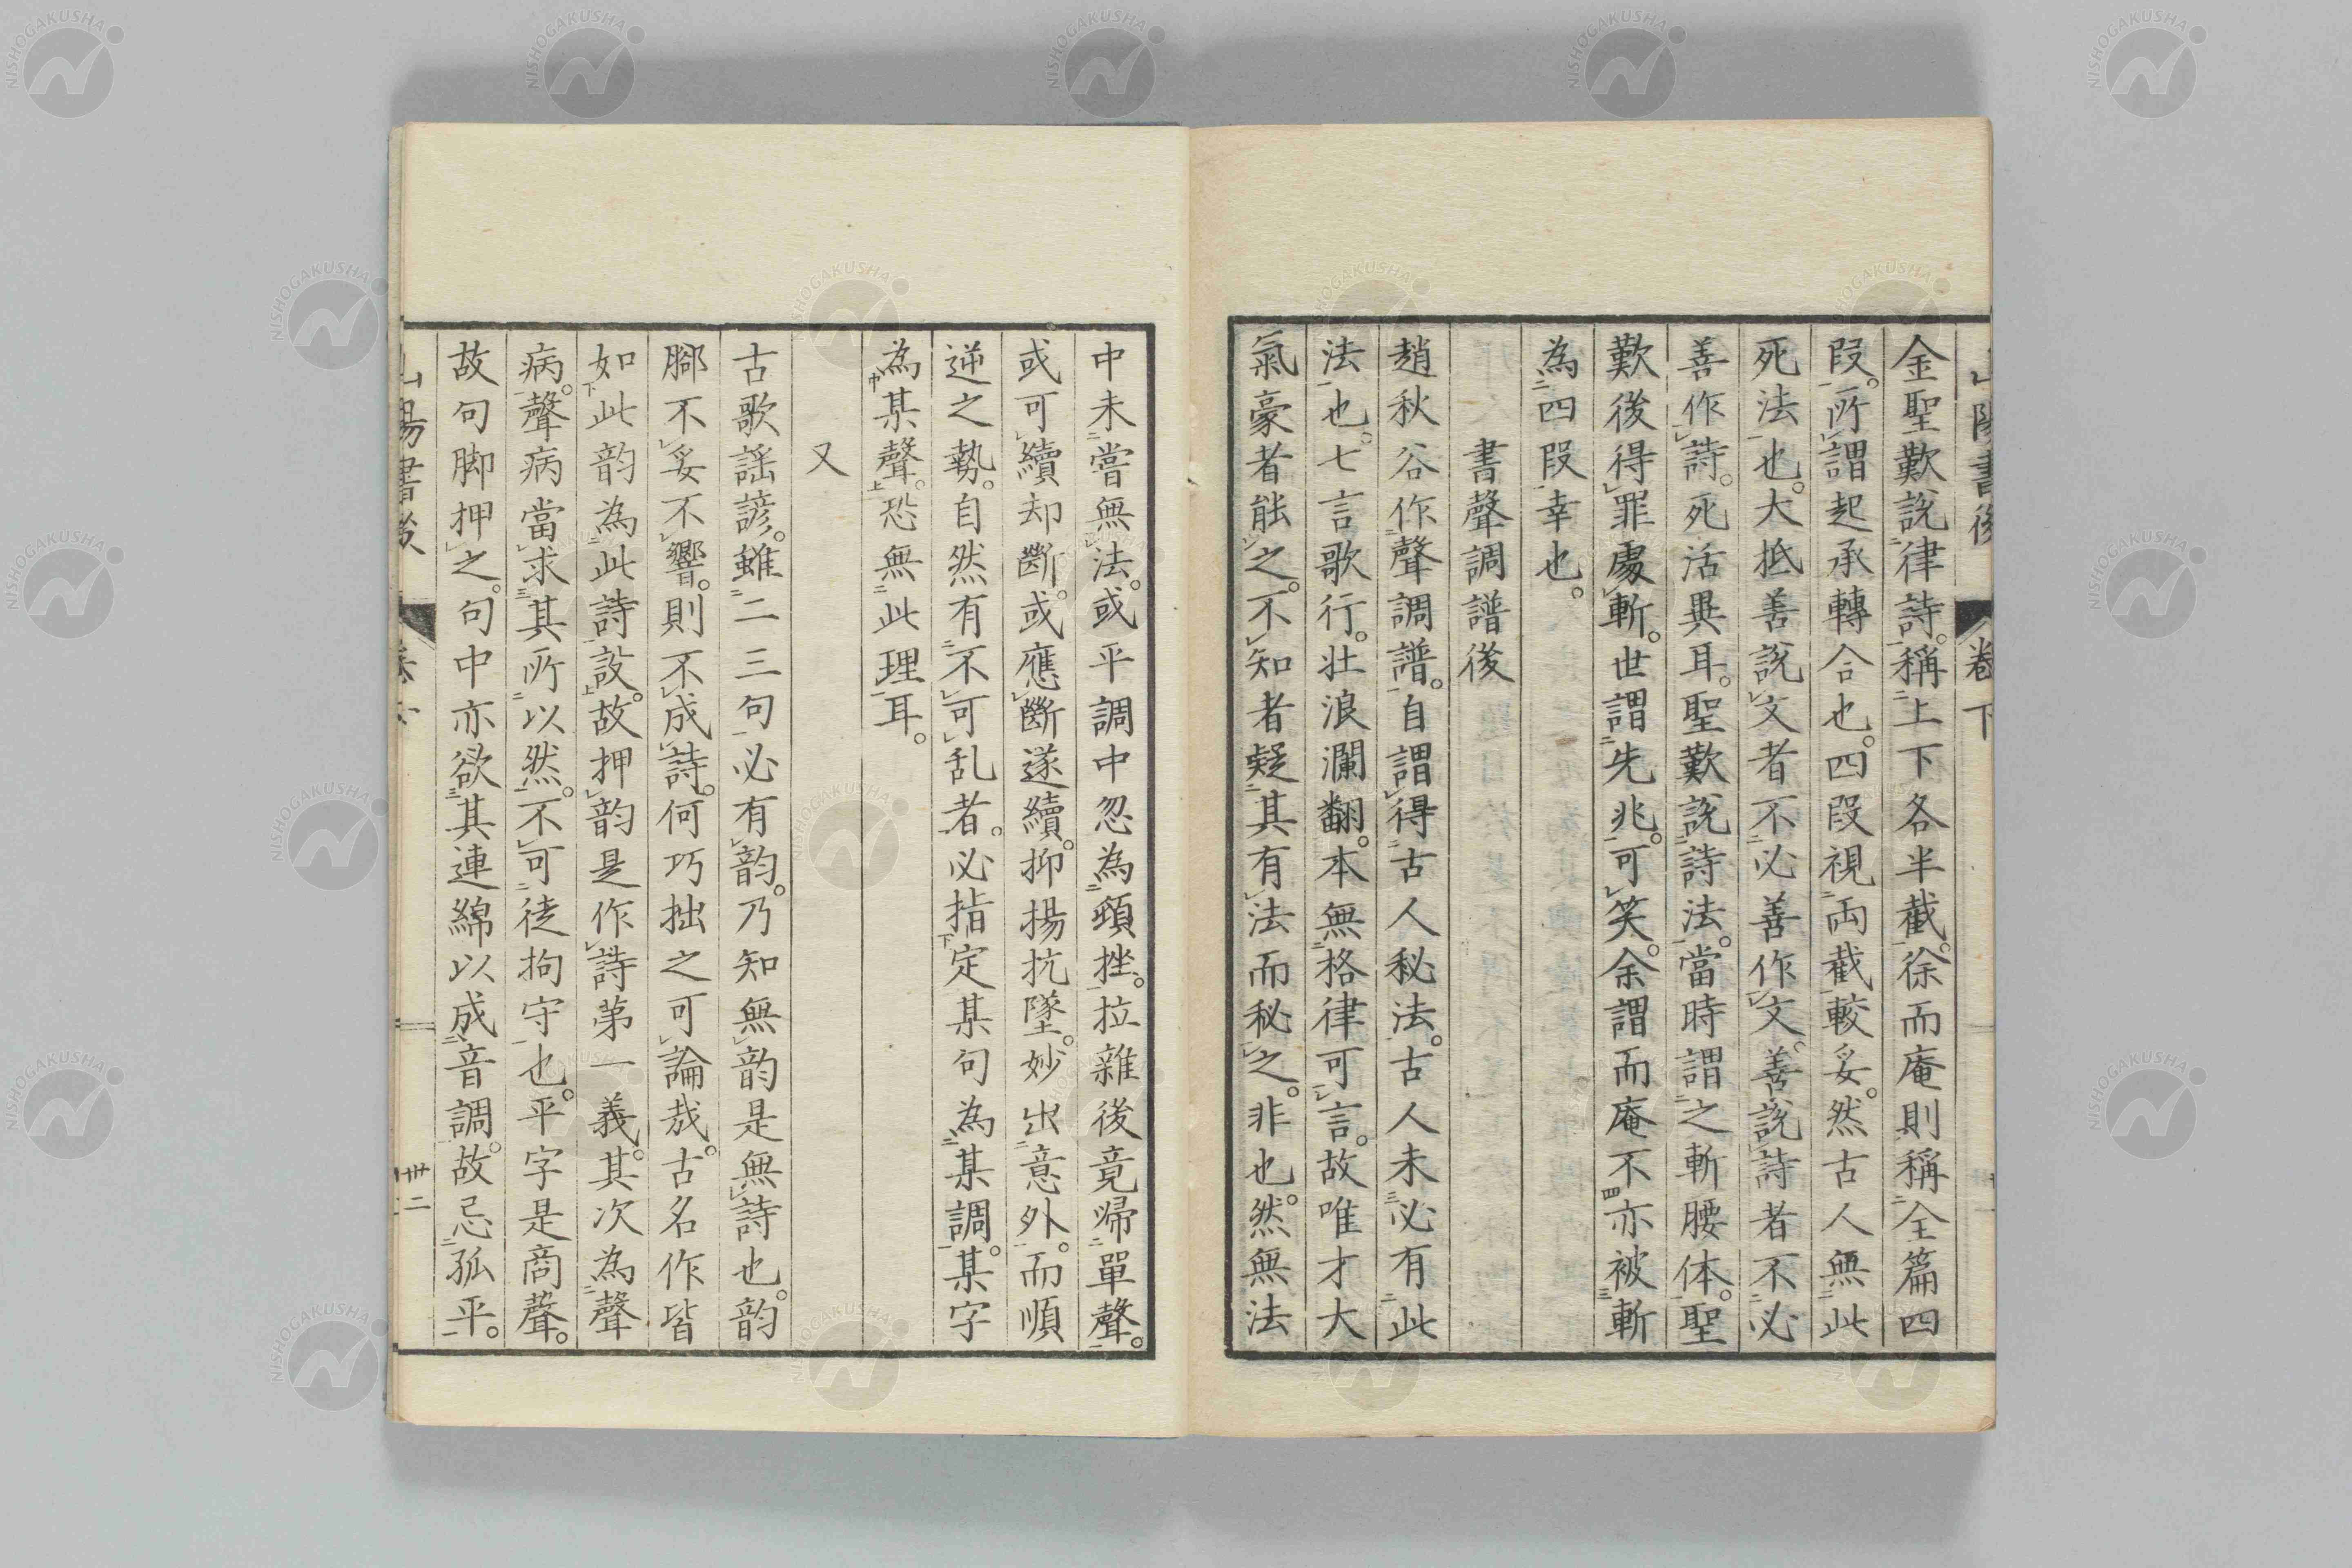 山陽書後 卷下
金聖歎說律詩。稱上下各半截。徐而庵則稱全篇四
段。所謂起承轉合也。四段視両截較妥。然古人無此
死法也。大抵善說文者不必善作文。善說詩者不必
善作詩。死活異耳。聖歎說詩法。當時謂之斬腰体。聖
歎後得罪處斬。世謂先兆。可笑。余謂而庵不亦被斬
為四段幸也。
書聲調譜後
趙秋谷作聲調譜。自謂得古人秘法。古人未必有此
法也。七言歌行。壮浪瀾翻。本無格律可言。故唯才大
氣豪者能之。不知者疑其有法而秘之。非也。然無法
中未嘗無法。或平調中忽為頓挫。拉雜後竟歸單聲。
或可續却斷。或應斷遂續。抑揚抗墜。妙出意外。而順
逆之勢。自然有不可乱者。必指定某句為某調。某字
為某聲。恐無此理耳。
又
古歌謡諺。雖二三句必有韵。乃知無韵是無詩也。韵
腳不妥不響。則不成詩。何巧拙之可論哉。古名作皆
如此韵為此詩設。故押韵是作詩第一義。其次為聲
病。聲病當求其所以然。不可徒拘守也。平字是商聲。
故句脚押之。句中亦欲其連綿以成音調。故忌孤平。
山陽書後 卅二
NISHOGAKUSHA